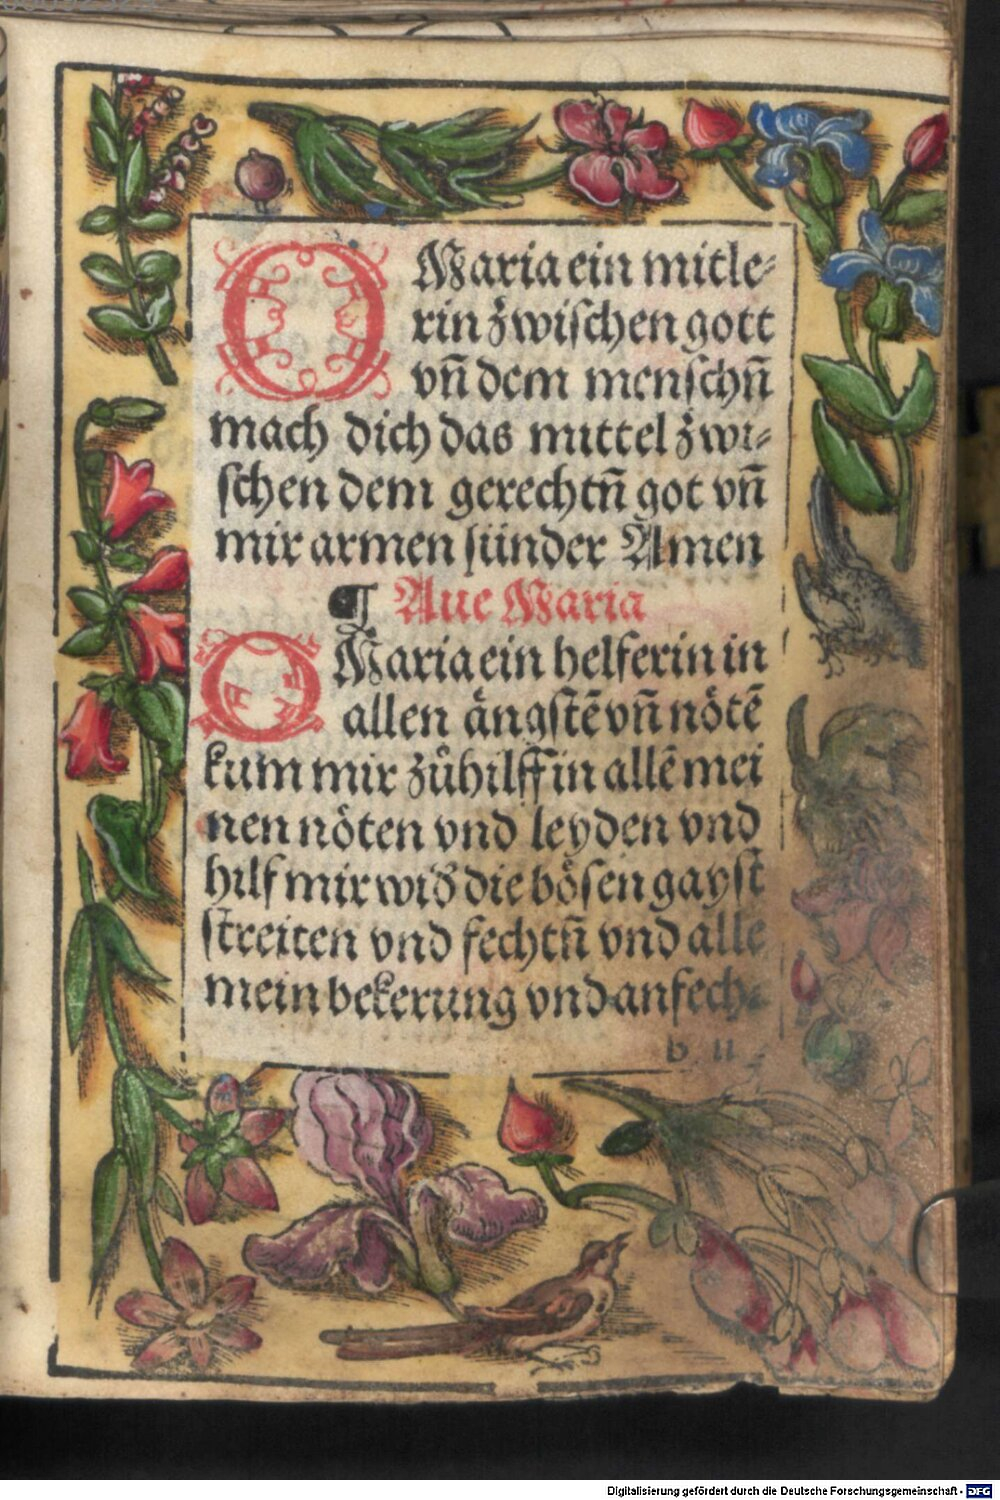 O Maria ein mitle⸗
rin zwiſchen gott
vñ dem menſchñ
mach dich das mittel zwi⸗
ſchen dem gerechtñ got vñ
mir armen ſünder Amen
¶ Aue Maria
O Maria ein helferin in
allen ängſtē vñ nötē
kum mir zůhilff in allē mei
nen nöten vnd leyden vnd
hilf mir wið die böſen gayſt
ſtreiten vnd fechtñ vnd alle
mein bekerung vnd anfech⸗
b ii
Digitalisierung gefördert durch die Deutsche Forschungsgemeinschaft - DFG